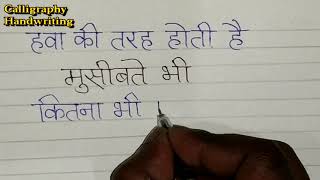 Calligraphy
Handwriting
हवा की तरह होती है
मुसीबते भी
कितना भी